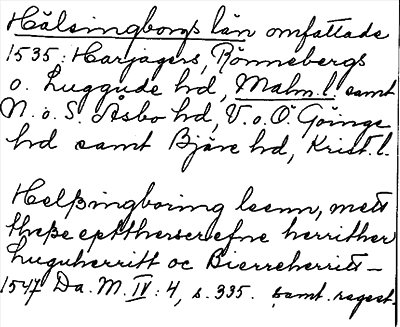 Hälsingborgs län omfattade
1535: Harjagers, Rönnebergs
o. Luggude hd, Malm. l. samt
N. o. S. Åsbo hd, V. o. Ö. Göinge
hd samt Bjäre hd, Krist. l.
Helßingboring leenn, mett
theße epttherscreffne herrither
Luguherritt oc Bierreherritt –
1547 Da. M. IV: 4, s. 335. samt. regest.